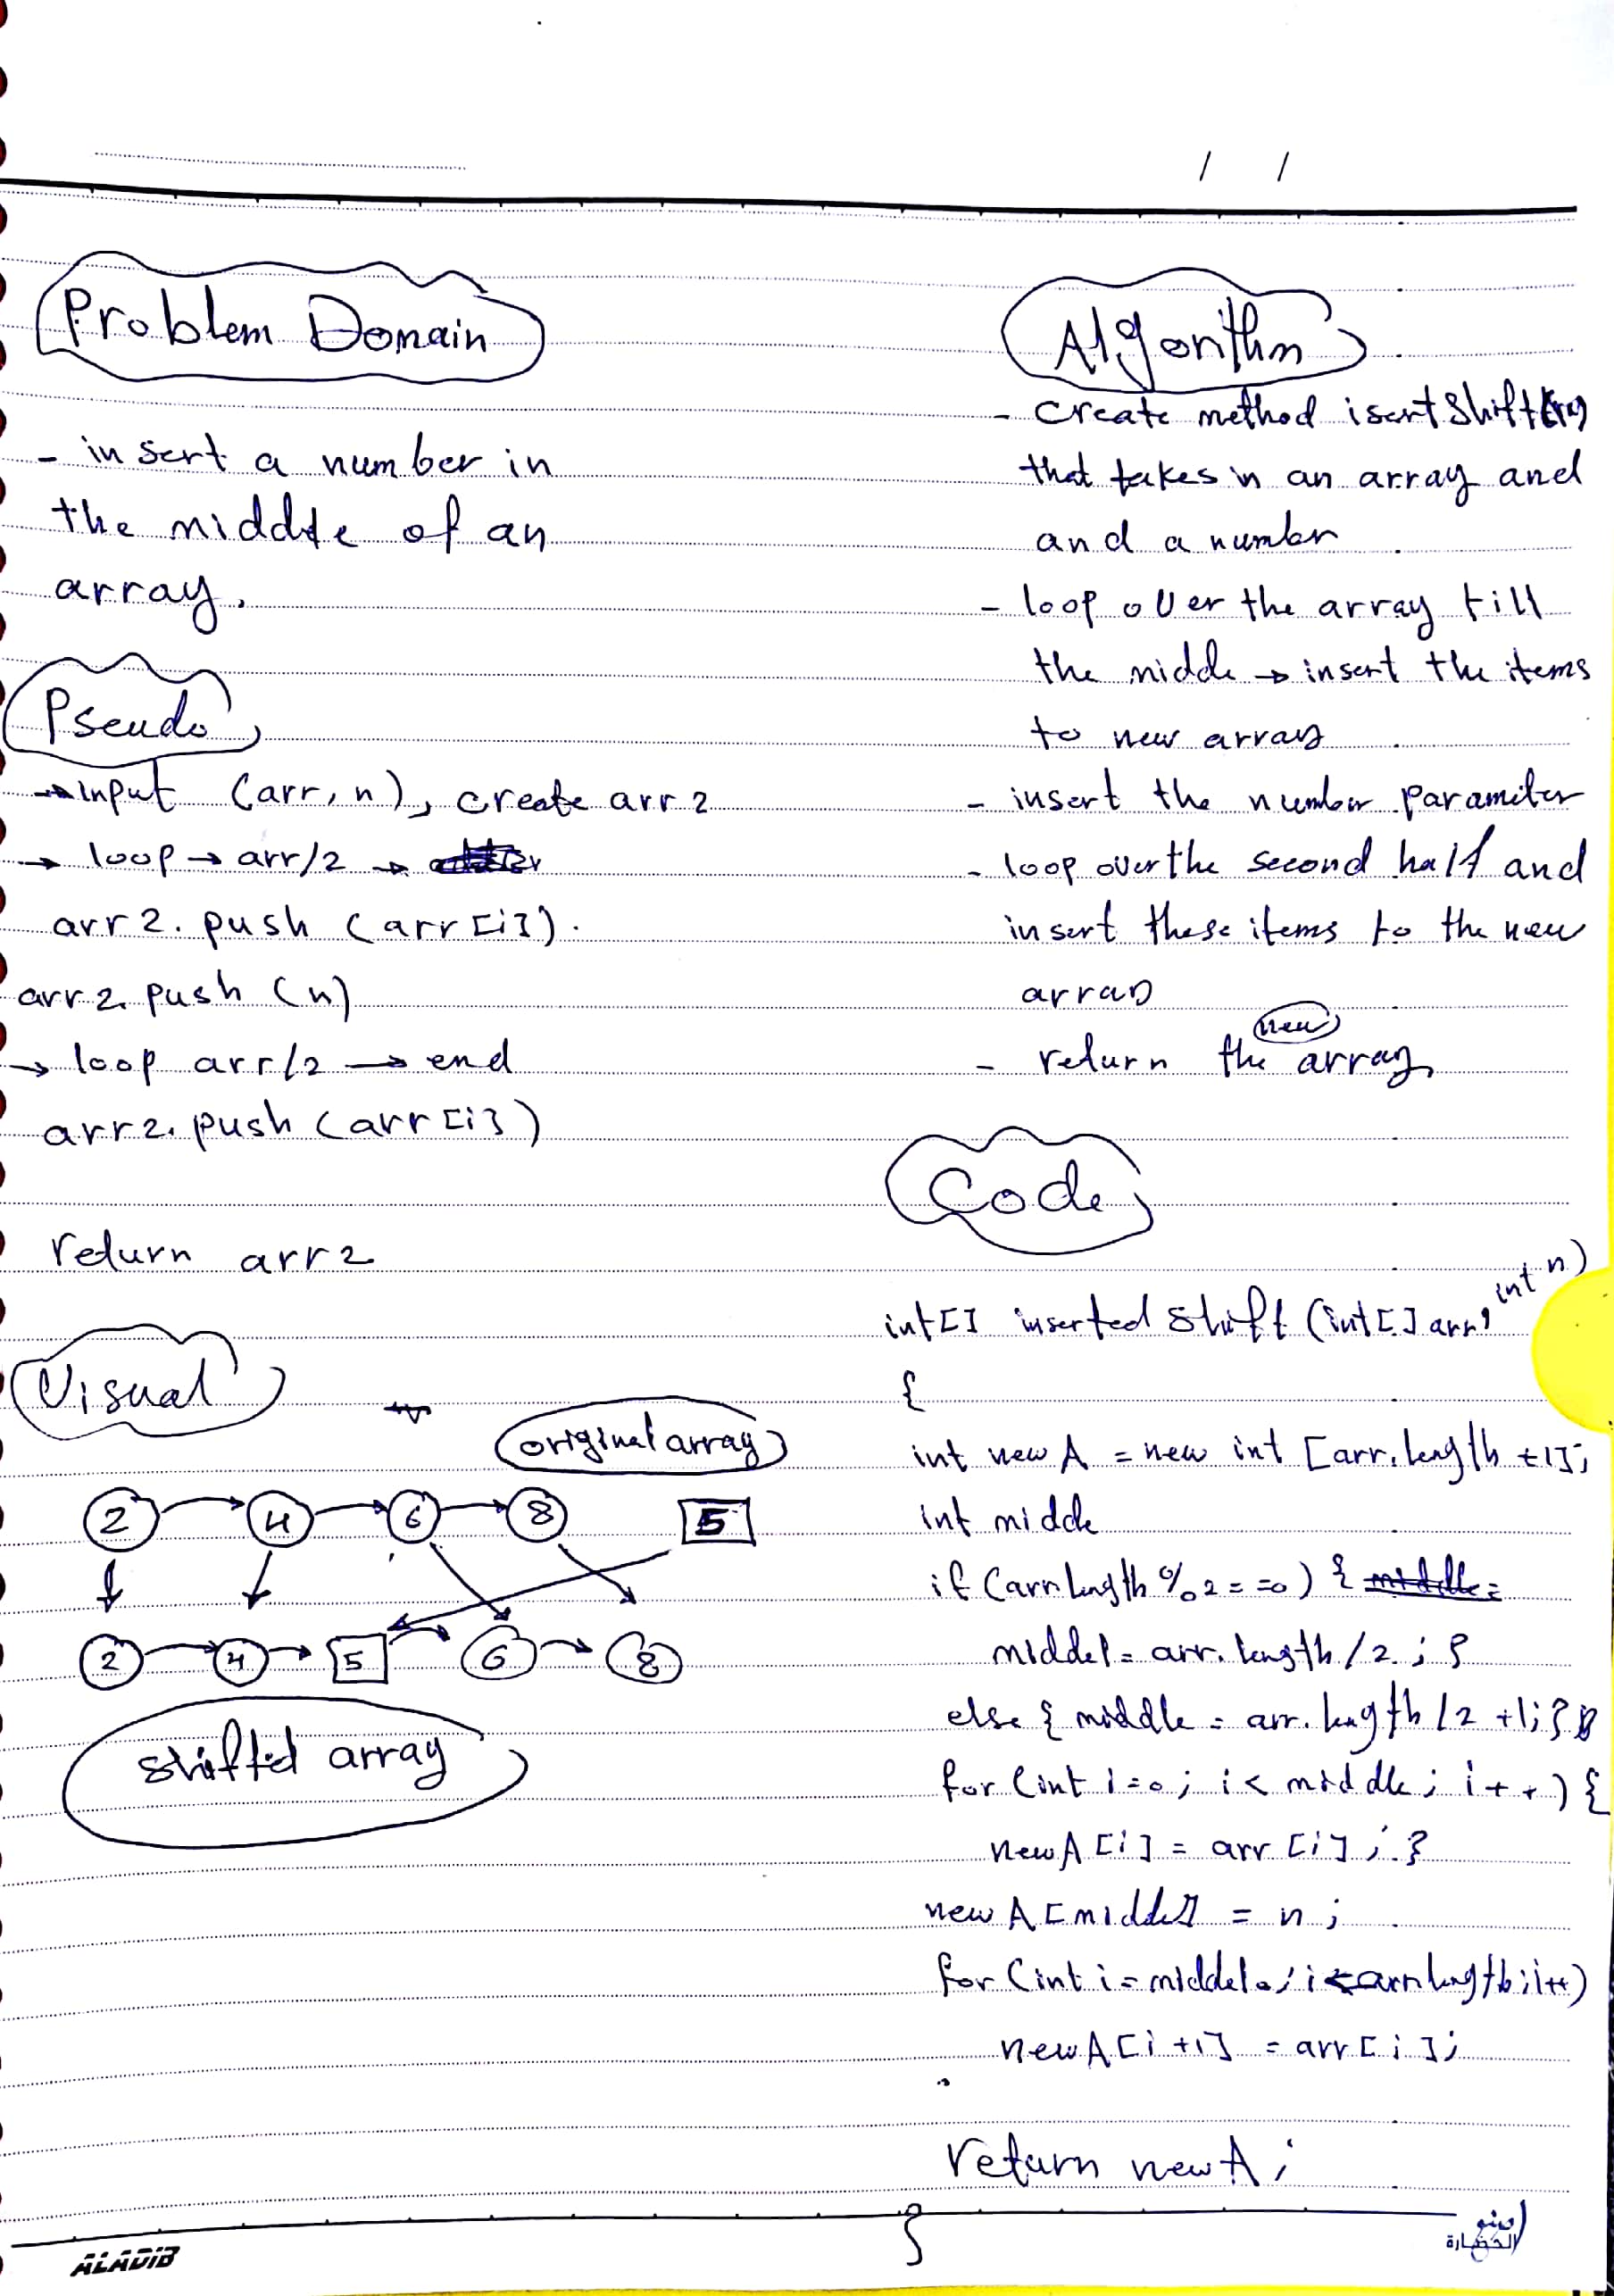 / /
Problem Domain
- insert a number in
the middle of an
array.
Pseudo
→ input (arr, n), create arr2
→ loop → arr/2 →
arr2.push (arr[i]).
arr2.push (n)
→ loop arr/2 → end
arr2.push (arr[i])
return arr2
Visual
original array
2 4 6 8 5
2 4 5 6 8
shifted array
Algorithm
- create method isertShift
that takes in an array and
and a number
- loop over the array till
the middle → insert the items
to new array
- insert the number parameter
- loop over the second half and
insert these items to the new
array
new
- return the array
Code
int[] inserted Shift (int[] arr, int n)
{
int newA = new int [arr.length +1];
int middle
if (arr.length % 2 == 0) { middle =
middel = arr.length /2 ; }
else { middle = arr.length /2 +1; }
for (int i=0; i < middle; i++) {
newA[i] = arr[i]; }
newA[middel] = n;
for (int i = middel; i < arr.length; i++)
newA[i+1] = arr[i];
return newA;
}
ALADIB